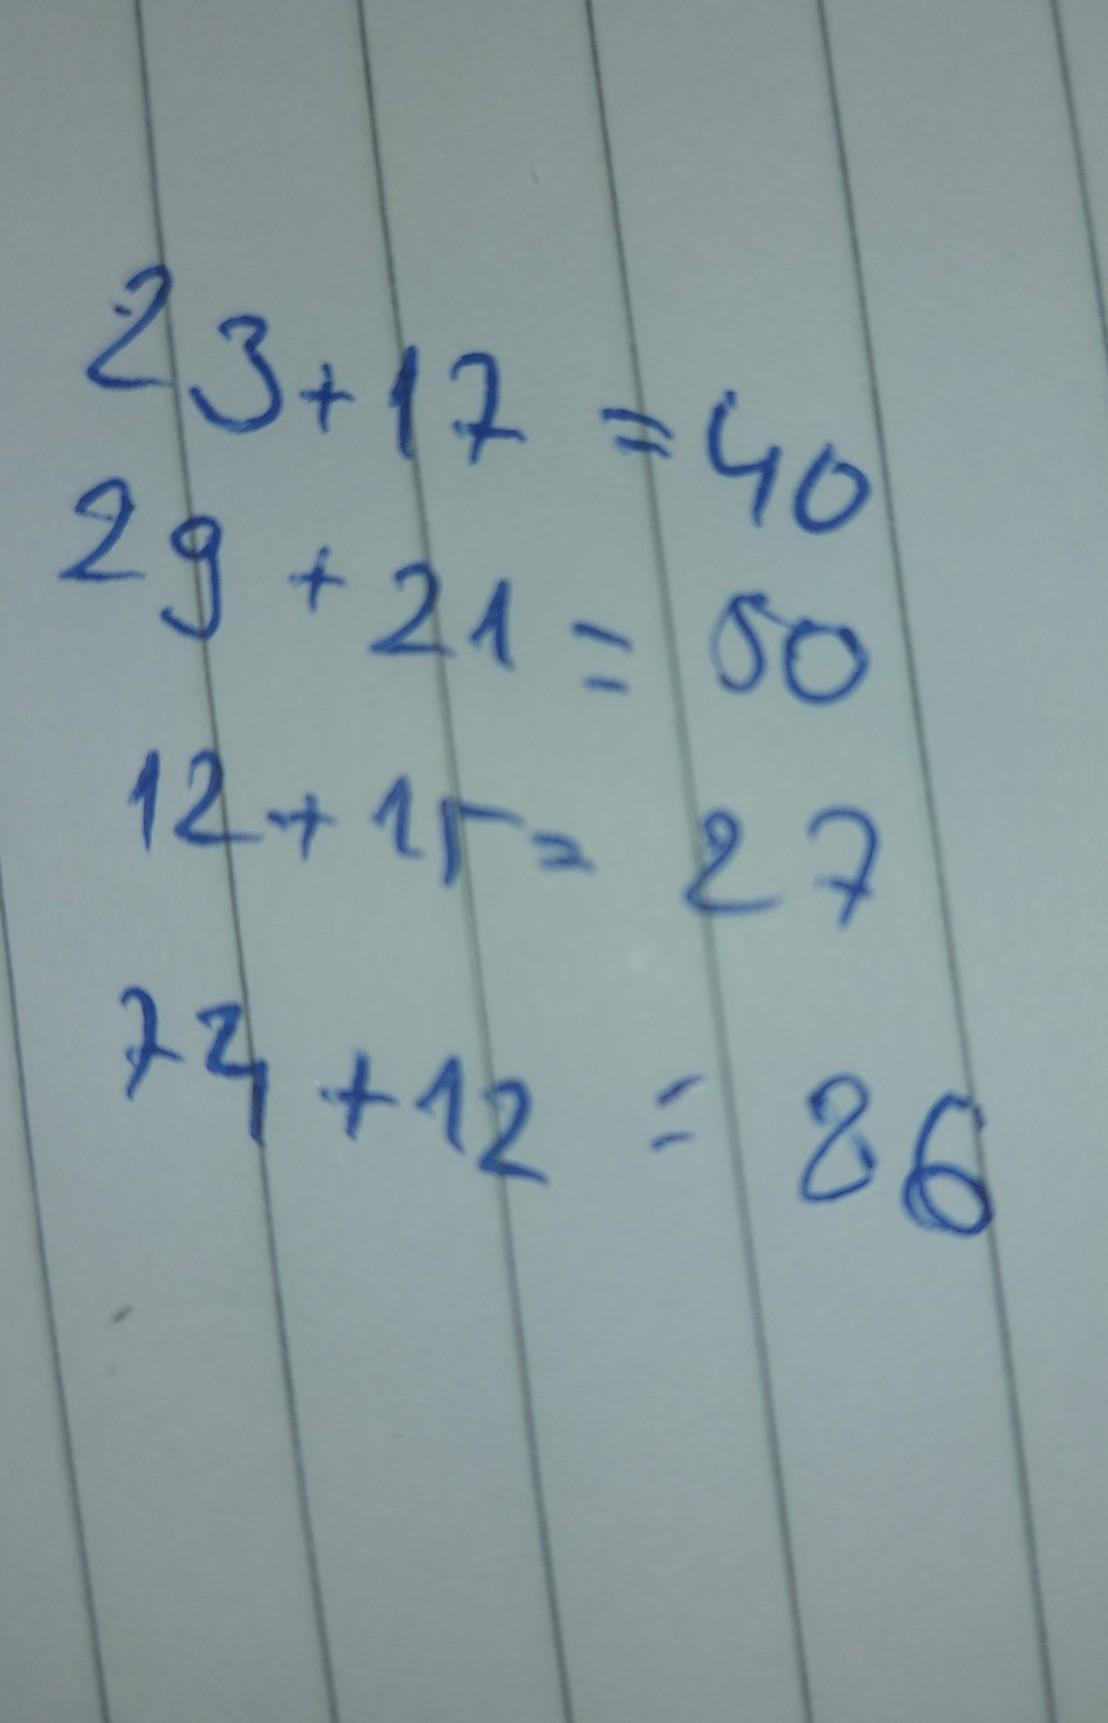 23+17 = 40
29 + 21 = 50
12 + 15 = 27
74 + 12 = 86